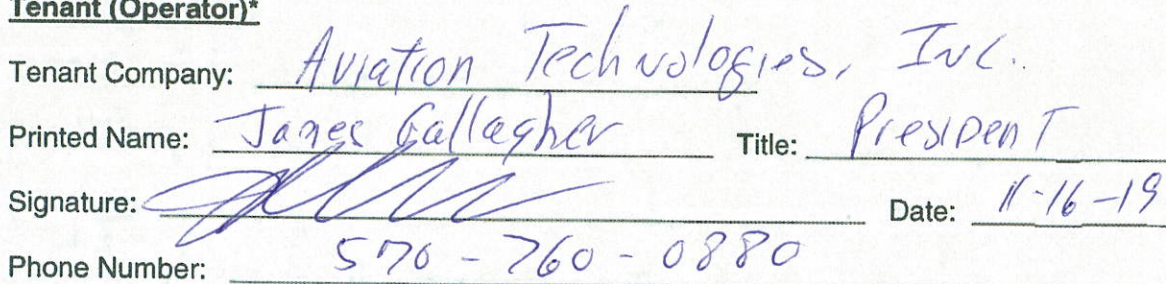 Tenant (Operator)*
Tenant Company: Aviation Technologies, Inc.
Printed Name: James Gallagher Title: President
Signature: Date: 11-16-19
Phone Number: 570-760-0880